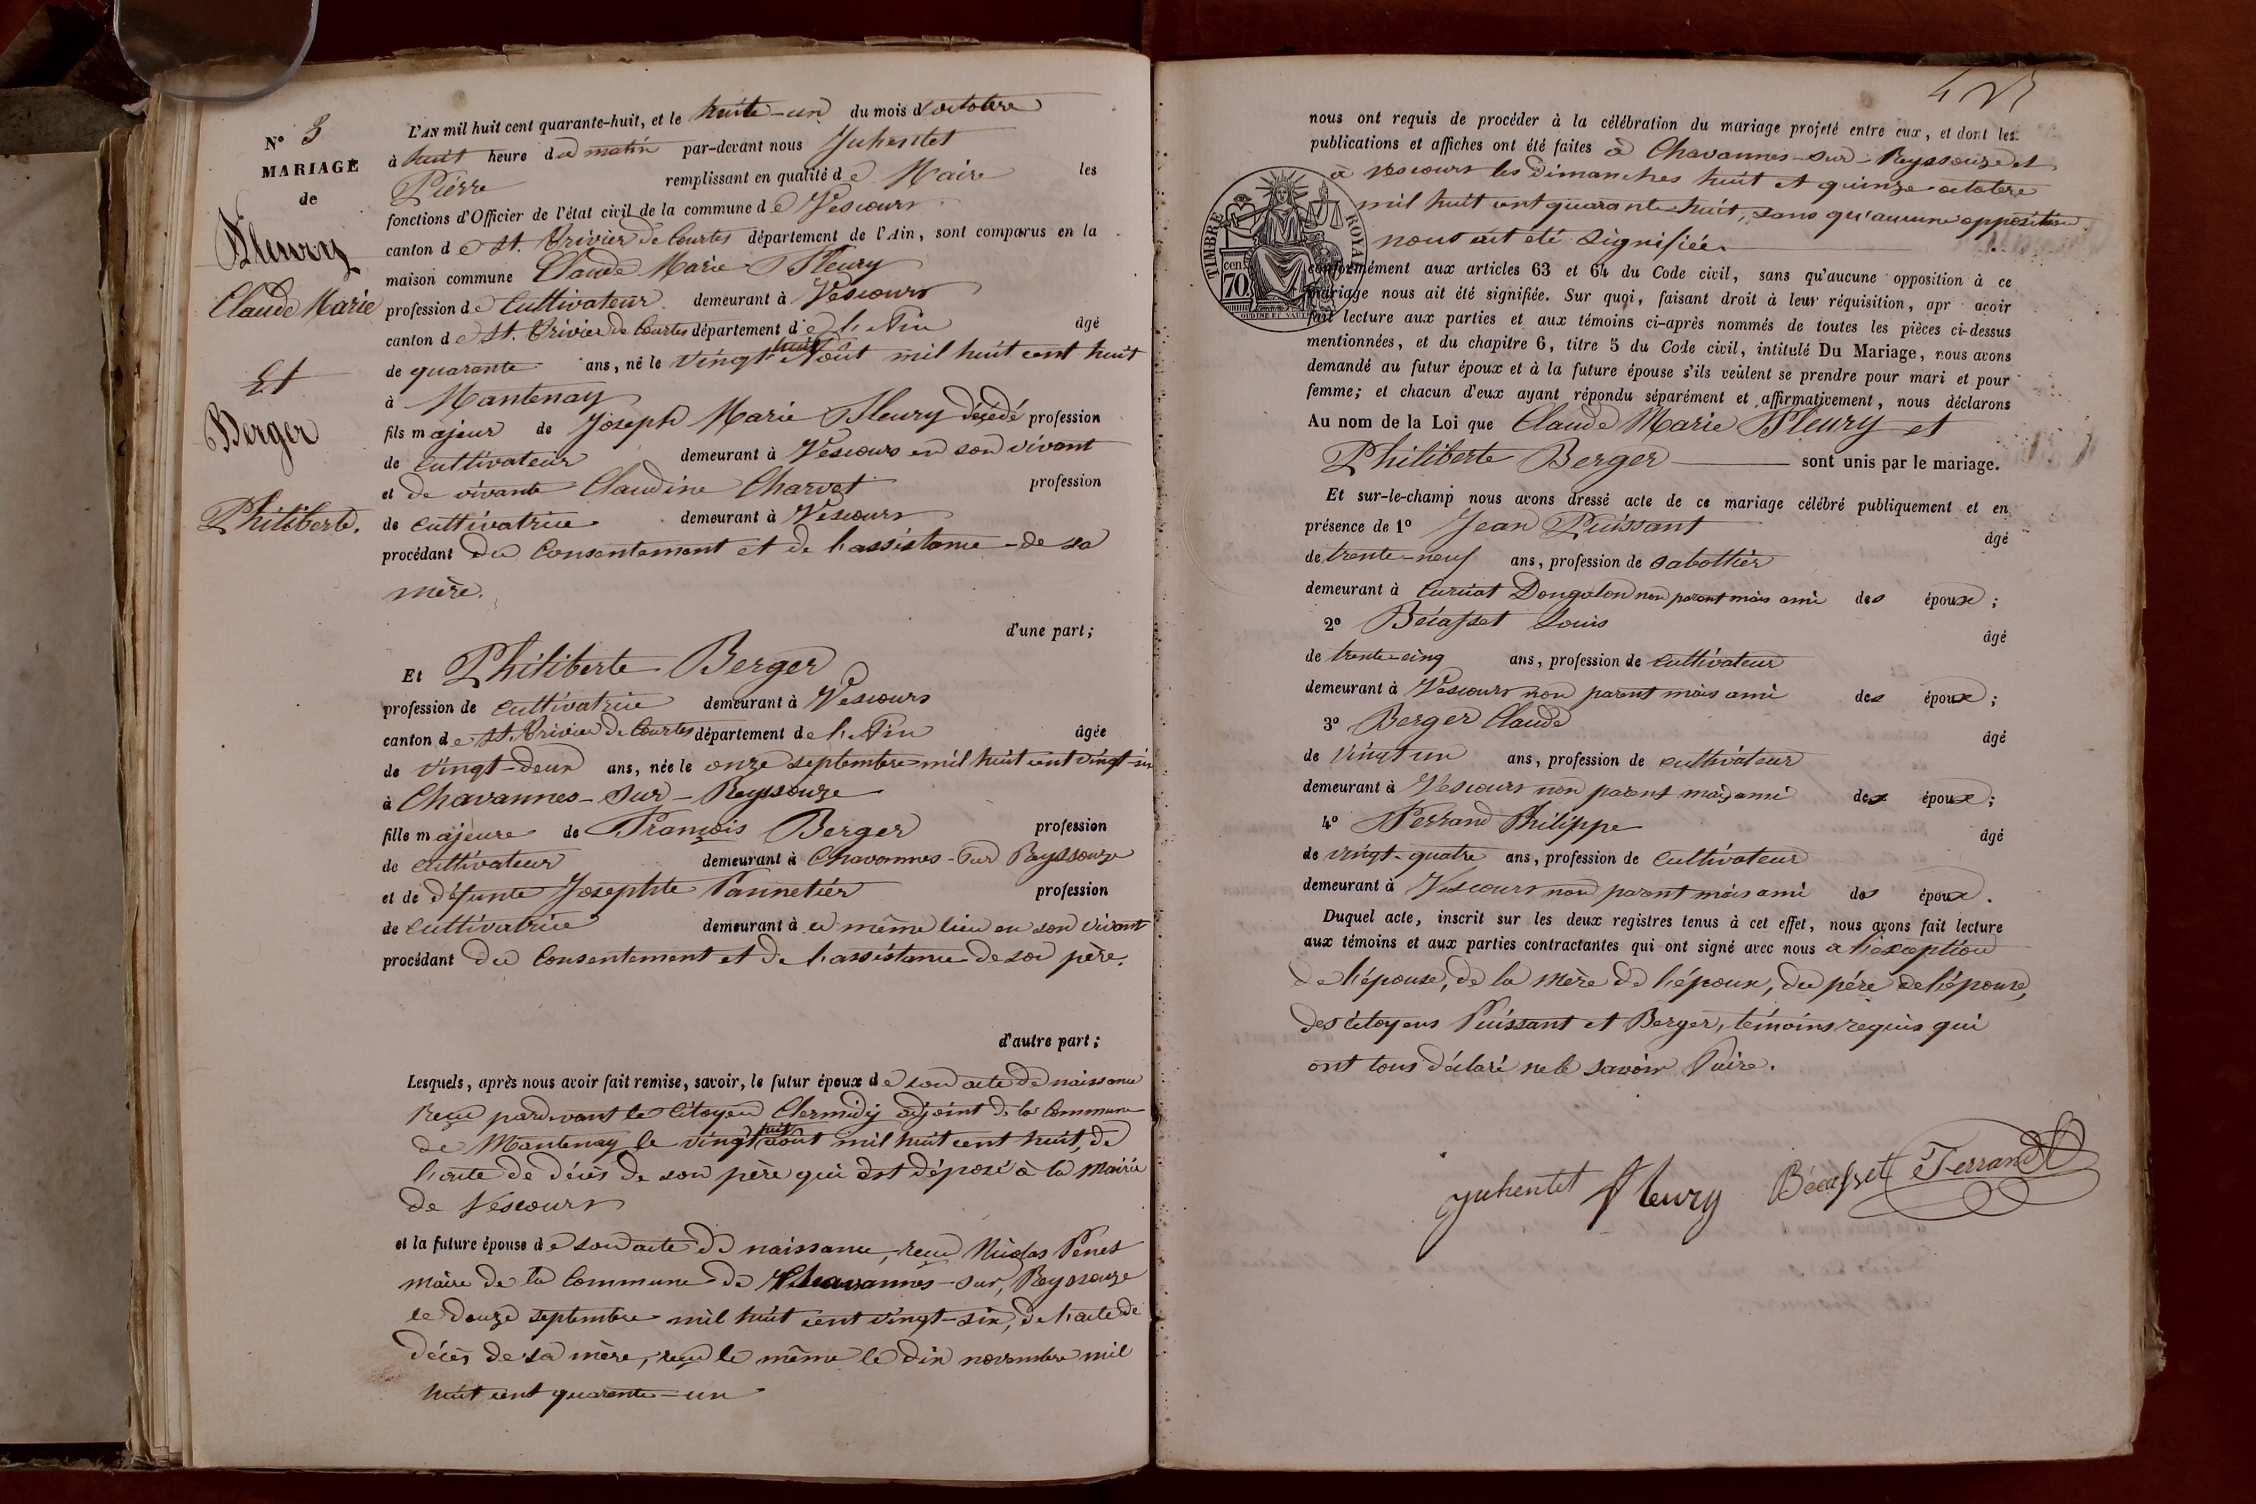 N° 3
MARIAGE
de
Fleury
Claude Marie
Et
Berger
Philiberte.
L'AN mil huit cent quarante-huit, et le trente-un du mois d'octobre
à huit heure du matin par-devant nous Juhentet
Pierre remplissant en qualité de Maire les
fonctions d'Officier de l'état civil de la commune de Vescours
canton de St. Trivier de Courtes département de l'Ain, sont comparus en la
maison commune Claude Marie Fleury
profession de Cultivateur demeurant à Vescours
canton de St. Trivier de Courtes département de l'Ain âgé
de quarante ans, né le vingt huit Août mil huit cent huit
à Mantenay
fils majeur de Joseph Marie Fleury décédé profession
de cultivateur demeurant à Vescours en son vivant
et de vivante Claudine Charvet profession
de cultivatrice demeurant à Vescours
procédant du Consentement et de l'assistance de sa
mère.
d'une part;
Et Philiberte Berger
profession de cultivatrice demeurant à Vescours
canton de St. Trivier de Courtes département de l'Ain âgée
de vingt-deux ans, née le onze septembre mil huit cent vingt-six
à Chavannes-Sur-Reyssouze
fille majeure de François Berger profession
de cultivateur demeurant à Chavannes-Sur Reyssouze
et de défunte Josephte Pannetier profession
de cultivatrice demeurant à ce même lieu en son vivant
procédant du Consentement et de l'assistance de son père.
d'autre part;
Lesquels, après nous avoir fait remise, savoir, le futur époux de son acte de naissance
reçu pardevant le Citoyen Clermidy adjoint de la Commune
de Mantenay le vingt huit août mil huit cent huit, de
l'acte de décès de son père qui est déposé à la Mairie
de Vescours
et la future épouse de son acte de naissance, reçu Nicolas Penet
maire de la Commune de Chavannes-sur, Reyssouze
le douze septembre mil huit cent vingt-six, de l'acte de
décès de sa mère, reçu le même le dix novembre mil
huit cent quarante-un
nous ont requis de procéder à la célébration du mariage projeté entre eux, et dont les
publications et affiches ont été faites à Chavannes-sur-Reyssouze et
à Vescours les Dimanches huit et quinze octobre
mil huit cent quarante huit, sans qu'aucune opposition
nous ait été signifiée.
TIMBRE ROYAL
cen. 70
conformément aux articles 63 et 64 du Code civil, sans qu'aucune opposition à ce
mariage nous ait été signifiée. Sur quoi, faisant droit à leur réquisition, apr avoir
fait lecture aux parties et aux témoins ci-après nommés de toutes les pièces ci-dessus
mentionnées, et du chapitre 6, titre 5 du Code civil, intitulé Du Mariage, nous avons
demandé au futur époux et à la future épouse s'ils veulent se prendre pour mari et pour
femme; et chacun d'eux ayant répondu séparément et affirmativement, nous déclarons
Au nom de la Loi que Claude Marie Fleury et
Philiberte Berger sont unis par le mariage.
Et sur-le-champ nous avons dressé acte de ce mariage célébré publiquement et en
présence de 1° Jean Puissant âgé
de trente-neuf ans, profession de sabottier
demeurant à Curciat Dongalon non parent mais ami des époux;
2° Bécasset Louis âgé
de trente-cinq ans, profession de cultivateur
demeurant à Vescours non parent mais ami des époux;
3° Berger Claude âgé
de vingt un ans, profession de cultivateur
demeurant à Vescours non parent mais ami des époux;
4° Ferrand Philippe âgé
de vingt-quatre ans, profession de cultivateur
demeurant à Vescours non parent mais ami des époux.
Duquel acte, inscrit sur les deux registres tenus à cet effet, nous avons fait lecture
aux témoins et aux parties contractantes qui ont signé avec nous à l'exception
de l'épouse, de la mère de l'époux, du père de l'épouse,
des citoyens Puissant et Berger, témoins requis qui
ont tous déclaré ne le savoir faire.
Juhentet Fleury Bécasset Ferrand